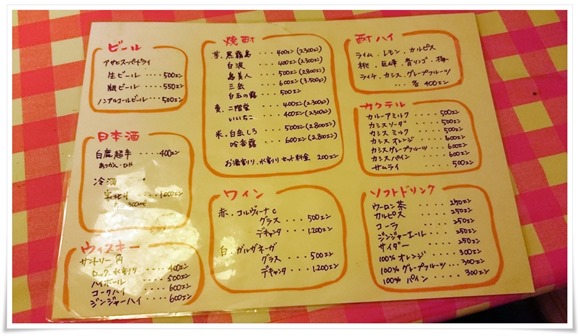 ビール
アサヒスーパードライ
生ビール・・・・・500エン
瓶ビール・・・・・550エン
ノンアルコールビール・・・500エン
日本酒
白鹿超辛・・・・400エン
冷酒
300ml
1,000エン
ウィスキー
サントリー角
ロック、水割り・・・400エン
ハイボール・・・・500エン
コークハイ・・・・600エン
ジンジャーハイ・・・600エン
焼酎
芋. 黒霧島・・・・400エン(2,300エン)
白波・・・・400エン(2,300エン)
島美人・・・・500エン(2,800エン)
三岳・・・・600エン(3,500エン)
白玉の露・・・・500エン
麦. 二階堂・・・・400エン(2,300エン)
いいちこ・・・・400エン(2,300エン)
米. 白岳しろ・・・500エン(2,800エン)
吟香露・・・・600エン(2,800エン)
お湯割り、水割りセット料金 200エン
ワイン
赤. コルヴィーナC
グラス・・・・500エン
デキャンタ・・・1,200エン
白. ガルガネーガ
グラス・・・・500エン
デキャンタ・・・1,200エン
酎ハイ
ライム、レモン、カルピス
桃、巨峰、青リンゴ、梅
ライチ、カシス、グレープフルーツ
・・・各 400エン
カクテル
カルーアミルク・・・・500エン
カシスソーダ・・・・500エン
カシスミルク・・・・500エン
カシスオレンジ・・・・600エン
カシスグレープフルーツ・・・600エン
カシスパイン・・・・600エン
サムライ・・・・500エン
ソフトドリンク
ウーロン茶・・・・250エン
カルピス・・・・250エン
コーラ・・・・250エン
ジンジャーエール・・・250エン
サイダー・・・・250エン
100%オレンジ・・・・300エン
100%グレープフルーツ・・・300エン
100%パイン・・・・300エン